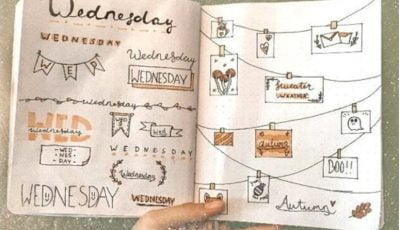 Wednesday
WEDNESDAY
Wednesday
WEDNESDAY
WED
wednesday
WED
wednesday
WED
Wed
WED-
NES
DAY
WEDNESDAY
Wednesday
WEDNESDAY
WEDNESDAY
sweater
WEATHER
autumn
BOO!!
Autumn